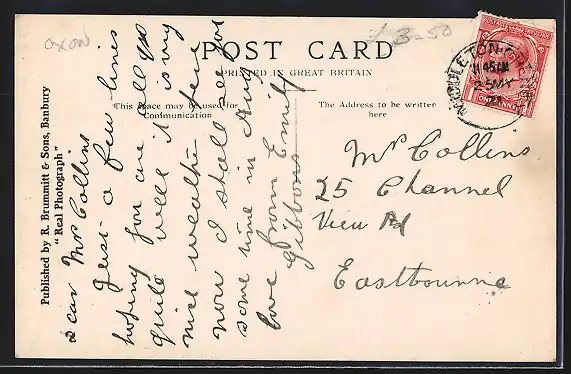 oxon
£ 3-50
POST CARD
PRINTED IN GREAT BRITAIN
This space may be used for
Communication
The Address to be written
here
Published by R. Brummitt & Sons, Banbury
"Real Photograph"
MIDDLETON CHENEY
25 MY
21
ONE PENNY
Dear Mrs Collins
Just a few lines
hoping you are all
quite well it is my
nice weather here
now I shall see you
some time in Aug
love from Emily
Gibbons
Mrs Collins
25 Channel
View Rd
Eastbourne